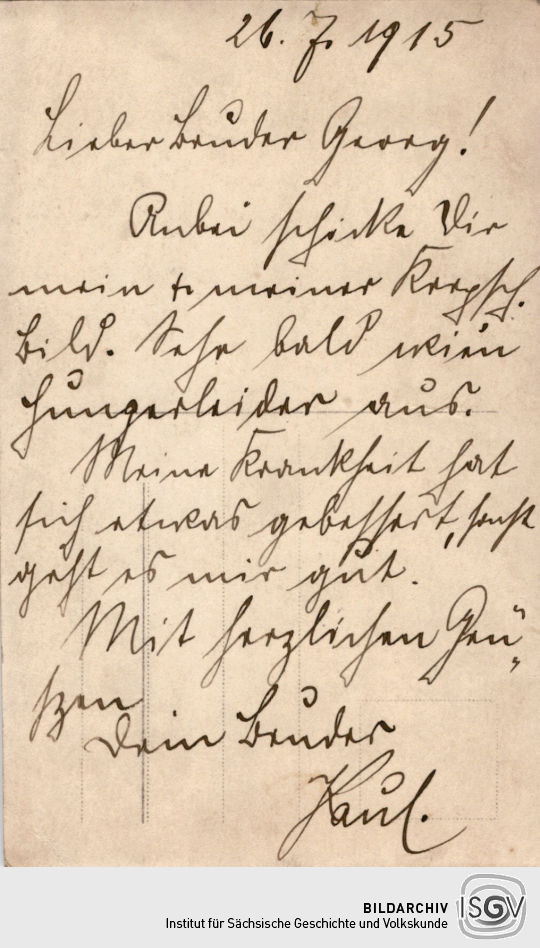 26. 7. 1915
Lieber Bruder Georg!
Anbei schicke Dir
mein u. meiner
Bild. Sehe bald wie
Hungerleider aus.
Meine Krankheit hat
sich etwas gebessert, sonst
geht es mir gut.
Mit herzlichen Grü
ßzen
Dein Bruder
Paul.
BILDARCHIV
ISGV
Institut für Sächsische Geschichte und Volkskunde